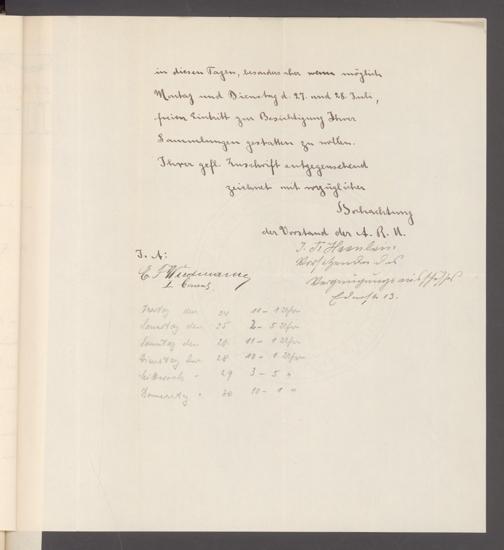 in diesen Tagen, besonders aber wenn möglich
Montag und Dienstag d. 27. und 28. Juli,
freien Eintritt zur Besichtigung Ihrer
Sammlungen gestatten zu wollen.
Ihrer gefl. Zuschrift entgegensehend
zeichnet mit vorzüglicher
Hochachtung
der Vorstand der A. R. U.
I. A:
Vorsitzender des
Vergnügungsausschusses
13.
Freitag den 24 11 – 1 Uhr
Samstag den 25 2 – 5 Uhr
Sonntag den 26 11 – 1 Uhr
Dienstag den 28 10 – 1 Uhr
Mittwoch " 29 3 – 5 "
Donnerstag " 30 10 – 1 "